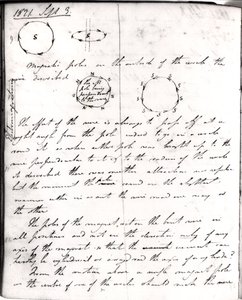 1821 Sept 3
S
Magnetic poles on the outside of the circle the wire described
N
S
The effort of the wire is always to pass off at a
right angle from the pole indeed to go in a circle
round it so when either pole was brought up to the
wire perpendicular to it and to the radius of the circle
it described there was neither attraction nor repulsion
but the moment the pole varied in the slightest
manner either in or out the wire moved one way or
the other
The poles of the magnet act on the bent wire in
all positions and not in the direction only of any
axis of the magnet so that the current can
hardly be cylindrical or arranged round the axis of a cylinder?
From the motion above a single magnet pole
in the centre of one of the circles should make the wire